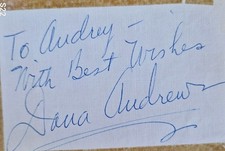 To Audrey -
With Best Wishes
Dana Andrews